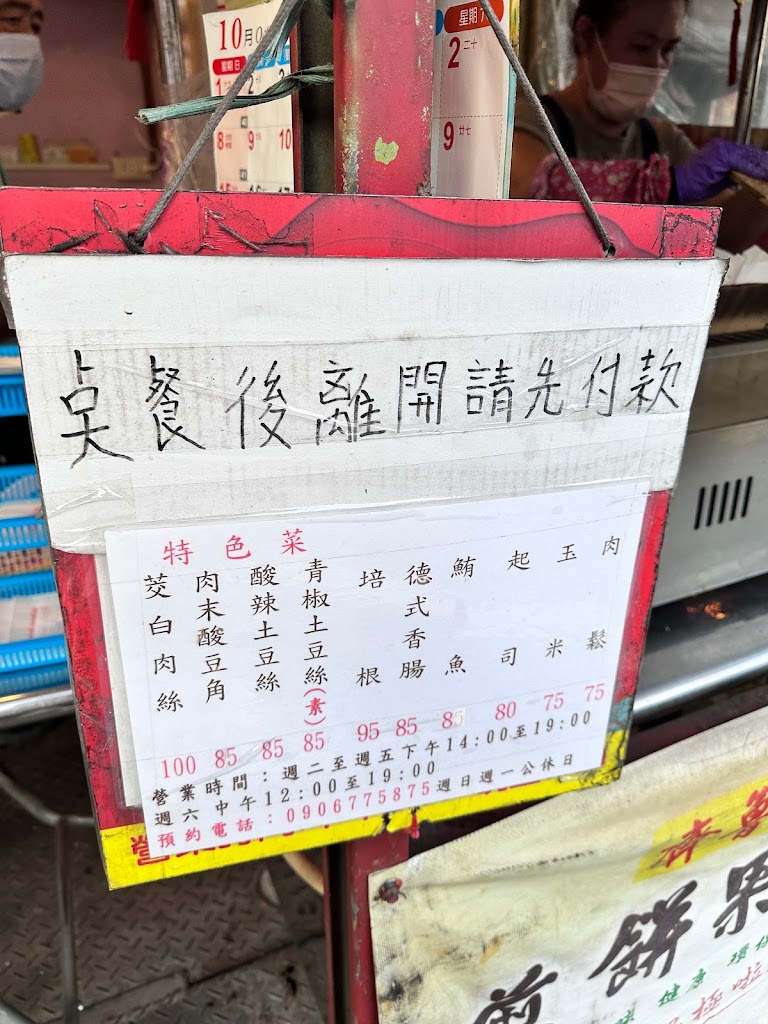 10月
星期日
1
2
8 9 10
星期
2 二十
9 廿七
奌餐後離開請先付款
特色菜
茭白肉絲 100
肉末酸豆角 85
酸辣土豆絲 85
青椒土豆絲(素) 85
培根 95
德式香腸 85
鮪魚 85
起司 80
玉米 75
肉鬆 75
營業時間：週二至週五下午14:00至19:00
週六中午12:00至19:00
預約電話：0906775875週日週一公休日
煎餅果
健康